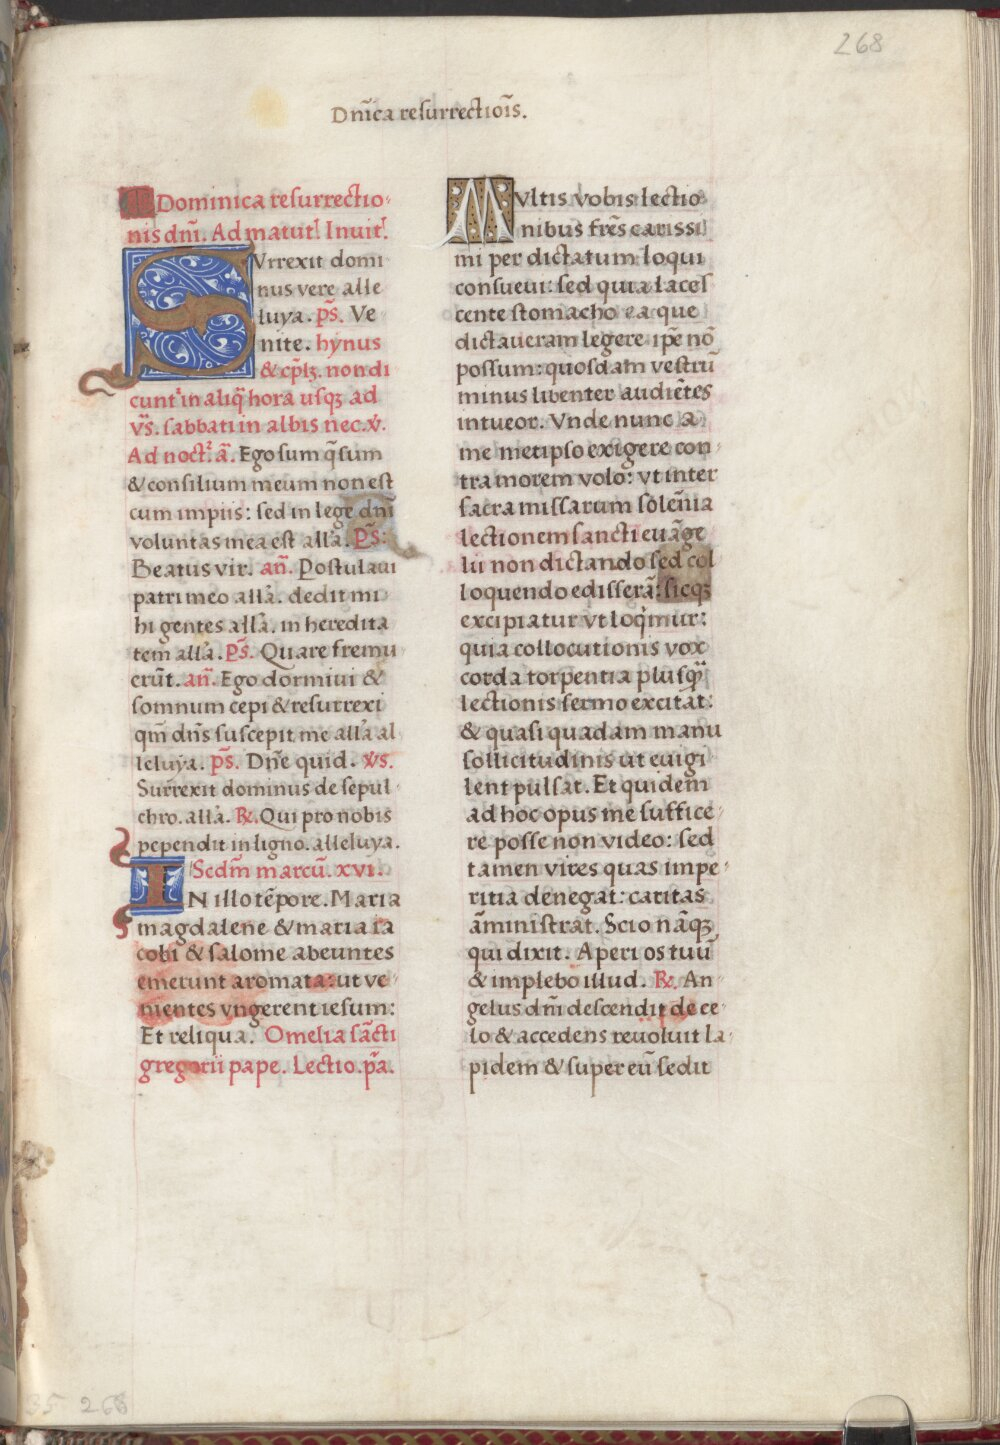 268
Dnīca resurrectiōis.
Dominica resurrectio-
nis dnī. Ad matut. Inuit.
SVrrexit domi
nus vere alle
luya. ps̄. Ve
nite. hynus
& cp̄lꝫ. non di
cunt' in aliq̄ hora usqꝫ ad
vs̄. sabbati in albis nec. v̇.
Ad noct. ā. Ego sum q̄ sum
& consilium meum non est
cum impiis: sed in lege dnī
voluntas mea est alla. ps̄:
Beatus vir. an̄. Postulaui
patri meo alla. dedit mi
hi gentes alla. in heredita
tem alla. ps̄. Quare fremu
erūt. an̄. Ego dormiui &
somnum cepi & resurrexi
qm̄ dn̄s suscepit me alla al
leluya. ps̄. Dn̄e quid. vs.
Surrexit dominus de sepul-
chro. alla. ℟. Qui pro nobis
pependit in ligno. alleluya.
Scdm̄ marcū. xvi.
IN illo tēpore. Maria
magdalene & maria ia
cobi & salome abeuntes
emerunt aromata: ut ve-
nientes vngerent iesum:
Et reliqua. Omelia sācti
gregorii pape. Lectio. pā.
MVltis vobis lectio-
nibus frēs carissi
mi per dictatum loqui
consueui: sed quia laces
cente stomacho ea que
dictaueram legere ipē nō
possum: quosdam vestrū
minus libenter audiētes
intueor. Vnde nunc a
me metipso exigere con-
tra morem volo: vt inter
sacra missarum solēnia
lectionem sancti euāge
lii non dictando sed col
loquendo edisserā: sicqꝫ
excipiatur vt loq̇mur:
quia collocutionis vox
corda torpentia plusq̄
lectionis sermo excitat:
& quasi quadam manu
sollicitudinis ut euigi-
lent pulsat. Et quidem
ad hoc opus me suffice-
re posse non video: sed
tamen vires quas impe-
ritia denegat: caritas
āministrat. Scio nāqꝫ
qui dixit. Aperi os tuū
& implebo illud. ℟. An-
gelus dnī descendit de ce-
lo & accedens reuoluit la-
pidem & super eū sedit
268